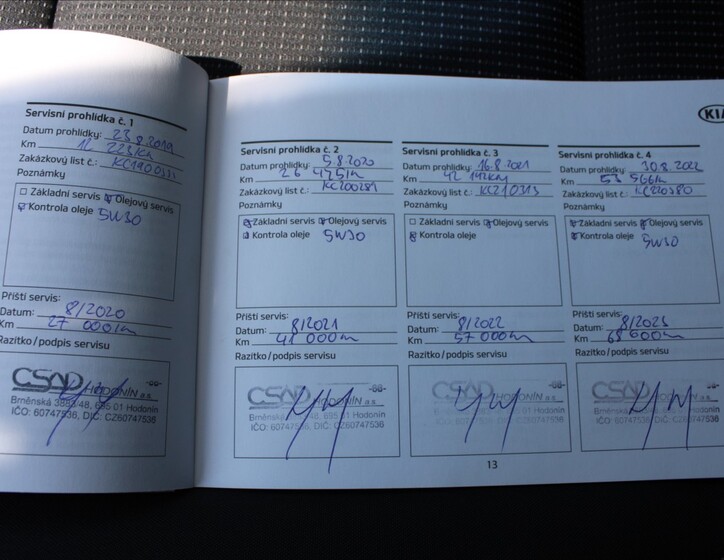 Servisní prohlídka č. 1
Datum prohlídky: 23.8.2019
Km 12 223 km
Zakázkový list č.:
Poznámky
Základní servis Olejový servis
Kontrola oleje 5W30
Příští servis:
Datum: 8/2020
Km 27 000 km
Razítko/podpis servisu
CSAD HODONÍN a.s.
Brněnská 3883/48, 695 01 Hodonín
IČO: 60747536, DIČ: CZ60747536
Servisní prohlídka č. 2
Datum prohlídky: 5.8.2020
Km 26 475 km
Zakázkový list č.: KC200281
Poznámky
Základní servis Olejový servis
Kontrola oleje 5W30
Příští servis:
Datum: 8/2021
Km 41 000 km
Razítko/podpis servisu
CSAD HODONÍN a.s.
Brněnská 3883/48, 695 01 Hodonín
IČO: 60747536, DIČ: CZ60747536
Servisní prohlídka č. 3
Datum prohlídky: 16.8.2021
Km 42 142 km
Zakázkový list č.: KC210313
Poznámky
Základní servis Olejový servis
Kontrola oleje
Příští servis:
Datum: 8/2022
Km 57 000 km
Razítko/podpis servisu
CSAD HODONÍN a.s.
Brněnská 3883/48, 695 01 Hodonín
IČO: 60747536, DIČ: CZ60747536
KIA
Servisní prohlídka č. 4
Datum prohlídky: 30.8.2022
Km 53 566 km
Zakázkový list č.: KC220380
Poznámky
Základní servis Olejový servis
Kontrola oleje 5W30
Příští servis:
Datum: 8/2023
Km 68 600 km
Razítko/podpis servisu
CSAD HODONÍN a.s.
Brněnská 3883/48, 695 01 Hodonín
IČO: 60747536, DIČ: CZ60747536
13